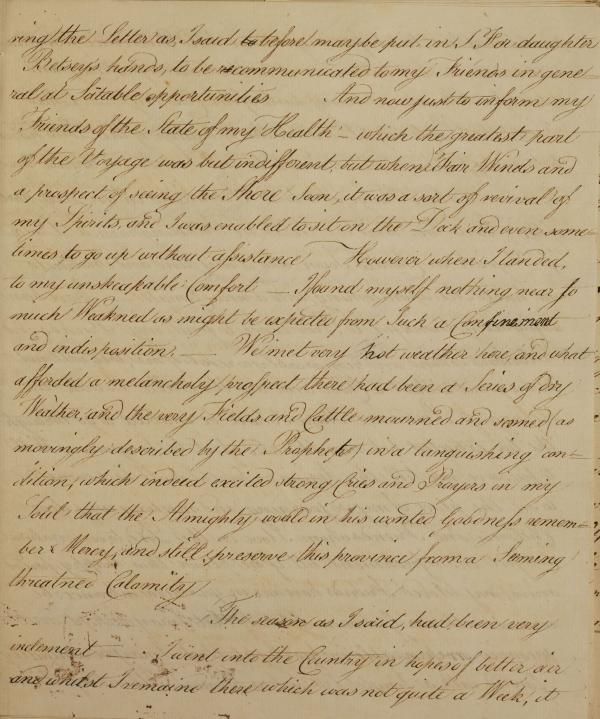 ring the Letter as, I said to before may be put in For daughter
Betseys hands, to be communicated to my Friends in gene-
ral at Sutable opportunities And now just to inform my
Friends of the State of my Health – which the greatest part
of the Voyage was but indifferent, but when Fair Winds and
a prospect of seeing the Shore Soon, it was a sort of revival of
my Spirits, and I was enabled to sit on the Deck and even some-
times to go up without assistance However when I landed,
to my unspeakable Comfort — I found myself nothing near so
much Weakned as might be expected from Such a Confinement
and indisposition. — We met very hot weather here, and what
afforded a melancholy prospect there had been a Series of dry
Weather, and the very Fields and Cattle mourned and seemed (as
movingly described by the Prophet) in a languishing con-
dition, which indeed excited strong Cries and Prayers in my
Soul that the Almighty would in his wonted Goodness remem-
ber Mercy, and still preserve this province from a Seeming
threatned Calamity
The season as I said, had been very
inclement — . I went into the Country in hopes of better air
and whilst I remaind there which was not quite a Week, it